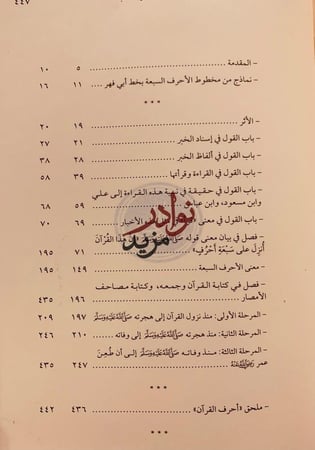 ٤٤٧
- المقدمة ٥ ١٠
- نماذج من مخطوط الأحرف السبعة بخط أبي فهر ١١ ١٦
***
- الأثر ١٩ ٢٠
- باب القول في إسناد الخبر ٢١ ٢٧
- باب القول في ألفاظ الخبر ٢٨ ٣٨
- باب القول في القراءة وقرأتها ٣٩ ٥٨
- باب القول في حقيقة في نسبة هذه القراءة إلى علي
وابن مسعود، وابن عباس ٥٩ ٦٨
- باب القول في معنى الأخبار ٦٩ ٧٠
- فصل في بيان معنى قوله ﷺ هذا القُرْآنَ
أُنزِلَ عَلَى سَبْعَةِ أَحْرُفٍ» ٧١ ١٩٥
- معنى الأحرف السبعة ١٤٩ ١٩٥
- فصل في كتابة القرآن وجمعه، وكتابة مصاحف
الأمصار ١٩٦ ٤٣٥
- المرحلة الأولى: منذ نزول القرآن إلى هجرته ﷺ ١٩٧ ٢٠٩
- المرحلة الثانية: منذ هجرته ﷺ إلى وفاته ٢١٠ ٢٤٦
- المرحلة الثالثة: منذ وفاته ﷺ إلى أن طُعِنَ
عمر رَضِيَ اللَّهُ عَنْهُ ٢٤٧ ٤٣٥
***
- ملحق «أحرف القرآن» ٤٣٦ ٤٤٢
***
نوادر
مزيد